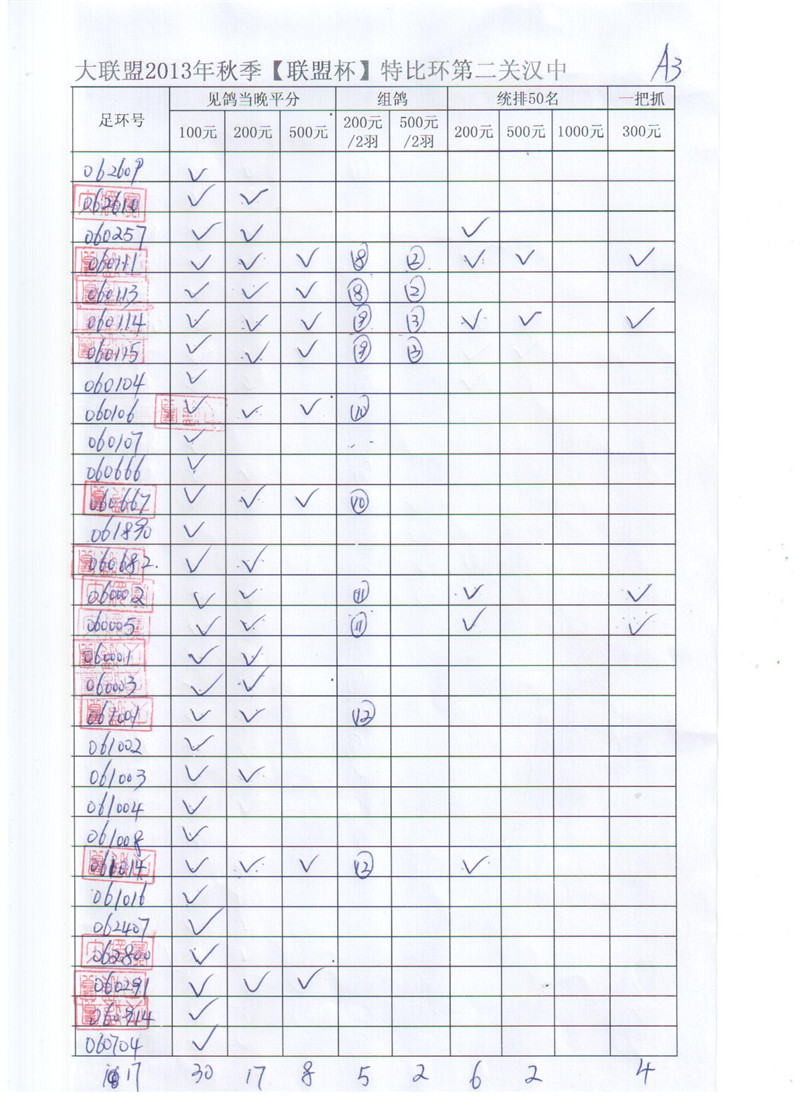 大联盟2013年秋季【联盟杯】特比环第二关汉中 A3
足环号 见鸽当晚平分 组鸽 统排50名 一把抓
100元 200元 500元 200元/2羽 500元/2羽 200元 500元 1000元 300元
062609 ✓
062610 ✓ ✓
060257 ✓ ✓ ✓
060111 ✓ ✓ ✓ ⑧ ② ✓ ✓ ✓
060113 ✓ ✓ ✓ ⑧ ②
060114 ✓ ✓ ✓ ⑨ ⑬ ✓ ✓ ✓
060115 ✓ ✓ ✓ ⑨ ⑬
060104 ✓
060106 ✓ ✓ ✓ ⑩
060107 ✓
060666 ✓
060667 ✓ ✓ ✓ ⑩
✓
060682 ✓ ✓
060002 ✓ ✓ ⑪ ✓ ✓
060005 ✓ ✓ ⑪ ✓ ✓
060001 ✓ ✓
060003 ✓ ✓
061001 ✓ ✓ ⑫
061002 ✓
061003 ✓ ✓
061004 ✓
061008 ✓
061014 ✓ ✓ ✓ ⑫ ✓
061016 ✓
062407 ✓
062800 ✓
060291 ✓ ✓ ✓
✓
060704 ✓
17 30 17 8 5 2 6 2 4